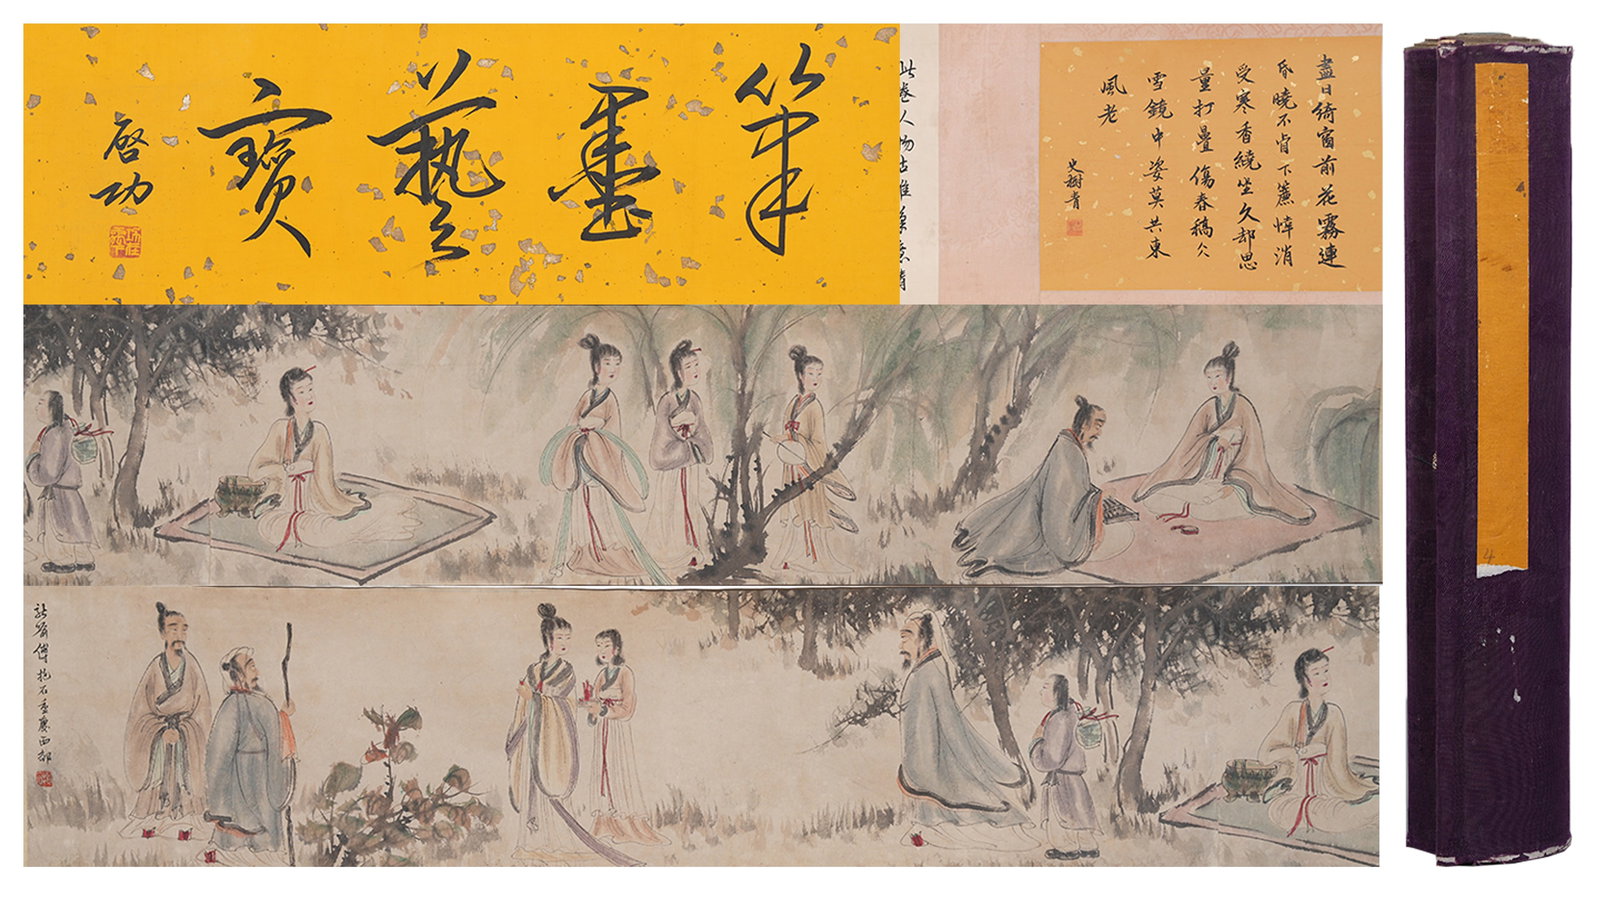 盡日綺窗前花霧連
昏曉不肯下簾帷消
受寒香繞坐久却思
量打疊傷春稿仌
雪鏡中姿莫共東
風老
史樹青
此卷人物古雅
筆墨藝寶
启功
新喻傅抱石重慶西郊
4